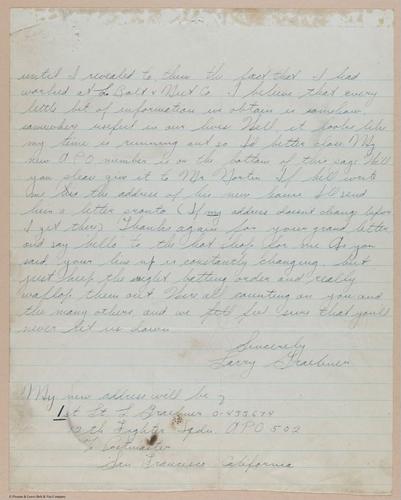 until I revealed to them the fact that I had
worked at L Bolt & Nut Co. I believe that every
little bit of information we obtain is somehow,
somewhere useful in our lives Well it looks like
my time is running out so I'd better close. My
new A.P.O number is on the bottom of this page Will
you please give it to Mr Horten If he'll write
me the address of his new home I'll send
him a letter pronto (If my address doesn't change before
I get there) Thanks again for your grand letter
and say hello to the hot shop for me As you
said your line up is constantly changing but
just keep the right batting order and really
wallop them out. We're all counting on you and
the many others, and we feel sure that you'll
never let us down
Sincerely
Larry Graebner
My new address will be ;
1st Lt. L Graebner 0-433674
th Fighter Sqdn. A.P.O 502
% Postmaster
San Francisco California